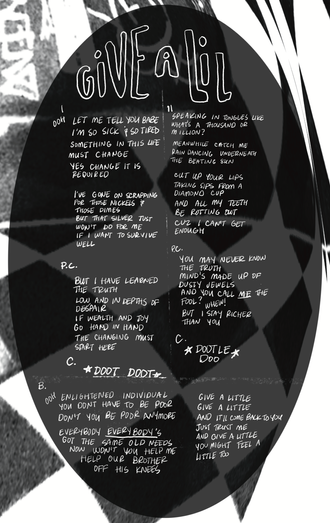 GIVE A LIL
I
OOH LET ME TELL YOU BABE
I'M SO SICK & SO TIRED
SOMETHING IN THIS LIFE
MUST CHANGE
YES CHANGE IT IS
REQUIRED
I'VE GONE ON SCRAPPING
FOR THOSE NICKELS &
THOSE DIMES
BUT THAT SILVER JUST
WON'T DO FOR ME
IF I WANT TO SURVIVE
WELL
P.C.
BUT I HAVE LEARNED
THE TRUTH
LOW AND IN DEPTHS OF
DESPAIR
IF WEALTH AND JOY
GO HAND IN HAND
THE CHANGING MUST
START HERE
C.
DOOT DOOT
II
SPEAKING IN JINGLES LIKE
WHATS A THOUSAND OR
MILLION?
MEANWHILE CATCH ME
RAIN DANCING UNDERNEATH
THE BEATING SUN
CUT UP YOUR LIPS
TAKING SIPS FROM A
DIAMOND CUP
AND ALL MY TEETH
BE ROTTING OUT
CUZ I CAN'T GET
ENOUGH
P.C.
YOU MAY NEVER KNOW
THE TRUTH
MIND'S MADE UP OF
DUSTY JEWELS
AND YOU CALL ME THE
FOOL? WHEW!
BUT I STAY RICHER
THAN YOU
C.
DOOTLE
DOO
B.
OOH ENLIGHTENED INDIVIDUAL
YOU DONT HAVE TO BE POOR
DON'T YOU BE POOR ANYMORE
EVERYBODY EVERYBODY'S
GOT THE SAME OLD NEEDS
NOW WON'T YOU HELP ME
HELP OUR BROTHER
OFF HIS KNEES
GIVE A LITTLE
GIVE A LITTLE
AND IT'LL COME BACK TO YOU
JUST TRUST ME
AND GIVE A LITTLE
YOU MIGHT FEEL A
LITTLE TOO